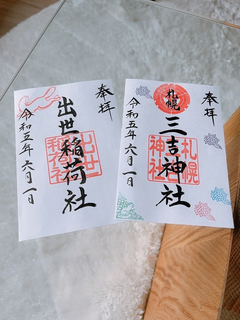 奉拝
出世稲荷社
出世
稲荷社
令和五年六月一日
奉拝
札幌
三吉神社
札幌
神社
令和五年六月一日